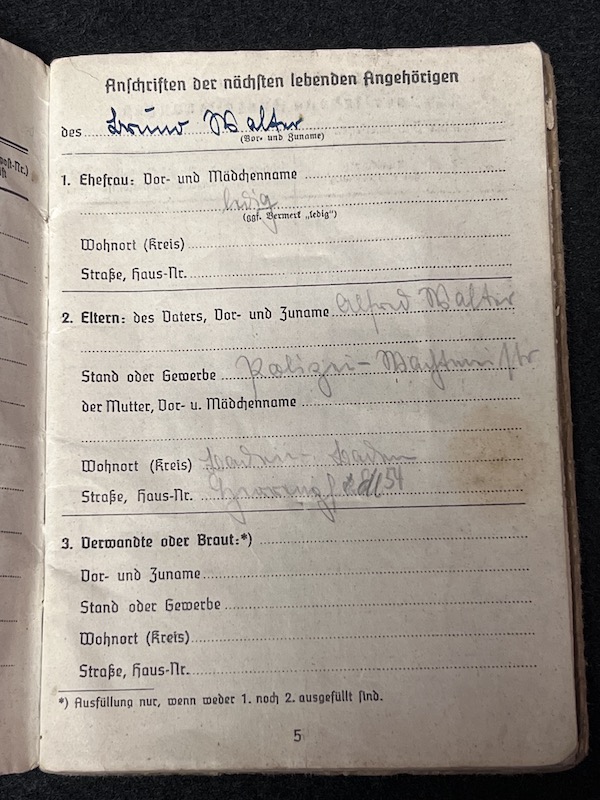 Anschriften der nächsten lebenden Angehörigen
des Bruno Walter
(Vor- und Zuname)
1. Ehefrau: Vor- und Mädchenname
ledig
(ggf. Vermerk „ledig“)
Wohnort (Kreis)
Straße, Haus-Nr.
2. Eltern: des Vaters, Vor- und Zuname Alfred Walter
Stand oder Gewerbe Polizei-Wachtmeister
der Mutter, Vor- u. Mädchenname
Wohnort (Kreis) Baden-Baden
Straße, Haus-Nr. 54
3. Verwandte oder Braut:*)
Vor- und Zuname
Stand oder Gewerbe
Wohnort (Kreis)
Straße, Haus-Nr.
*) Ausfüllung nur, wenn weder 1. noch 2. ausgefüllt sind.
5